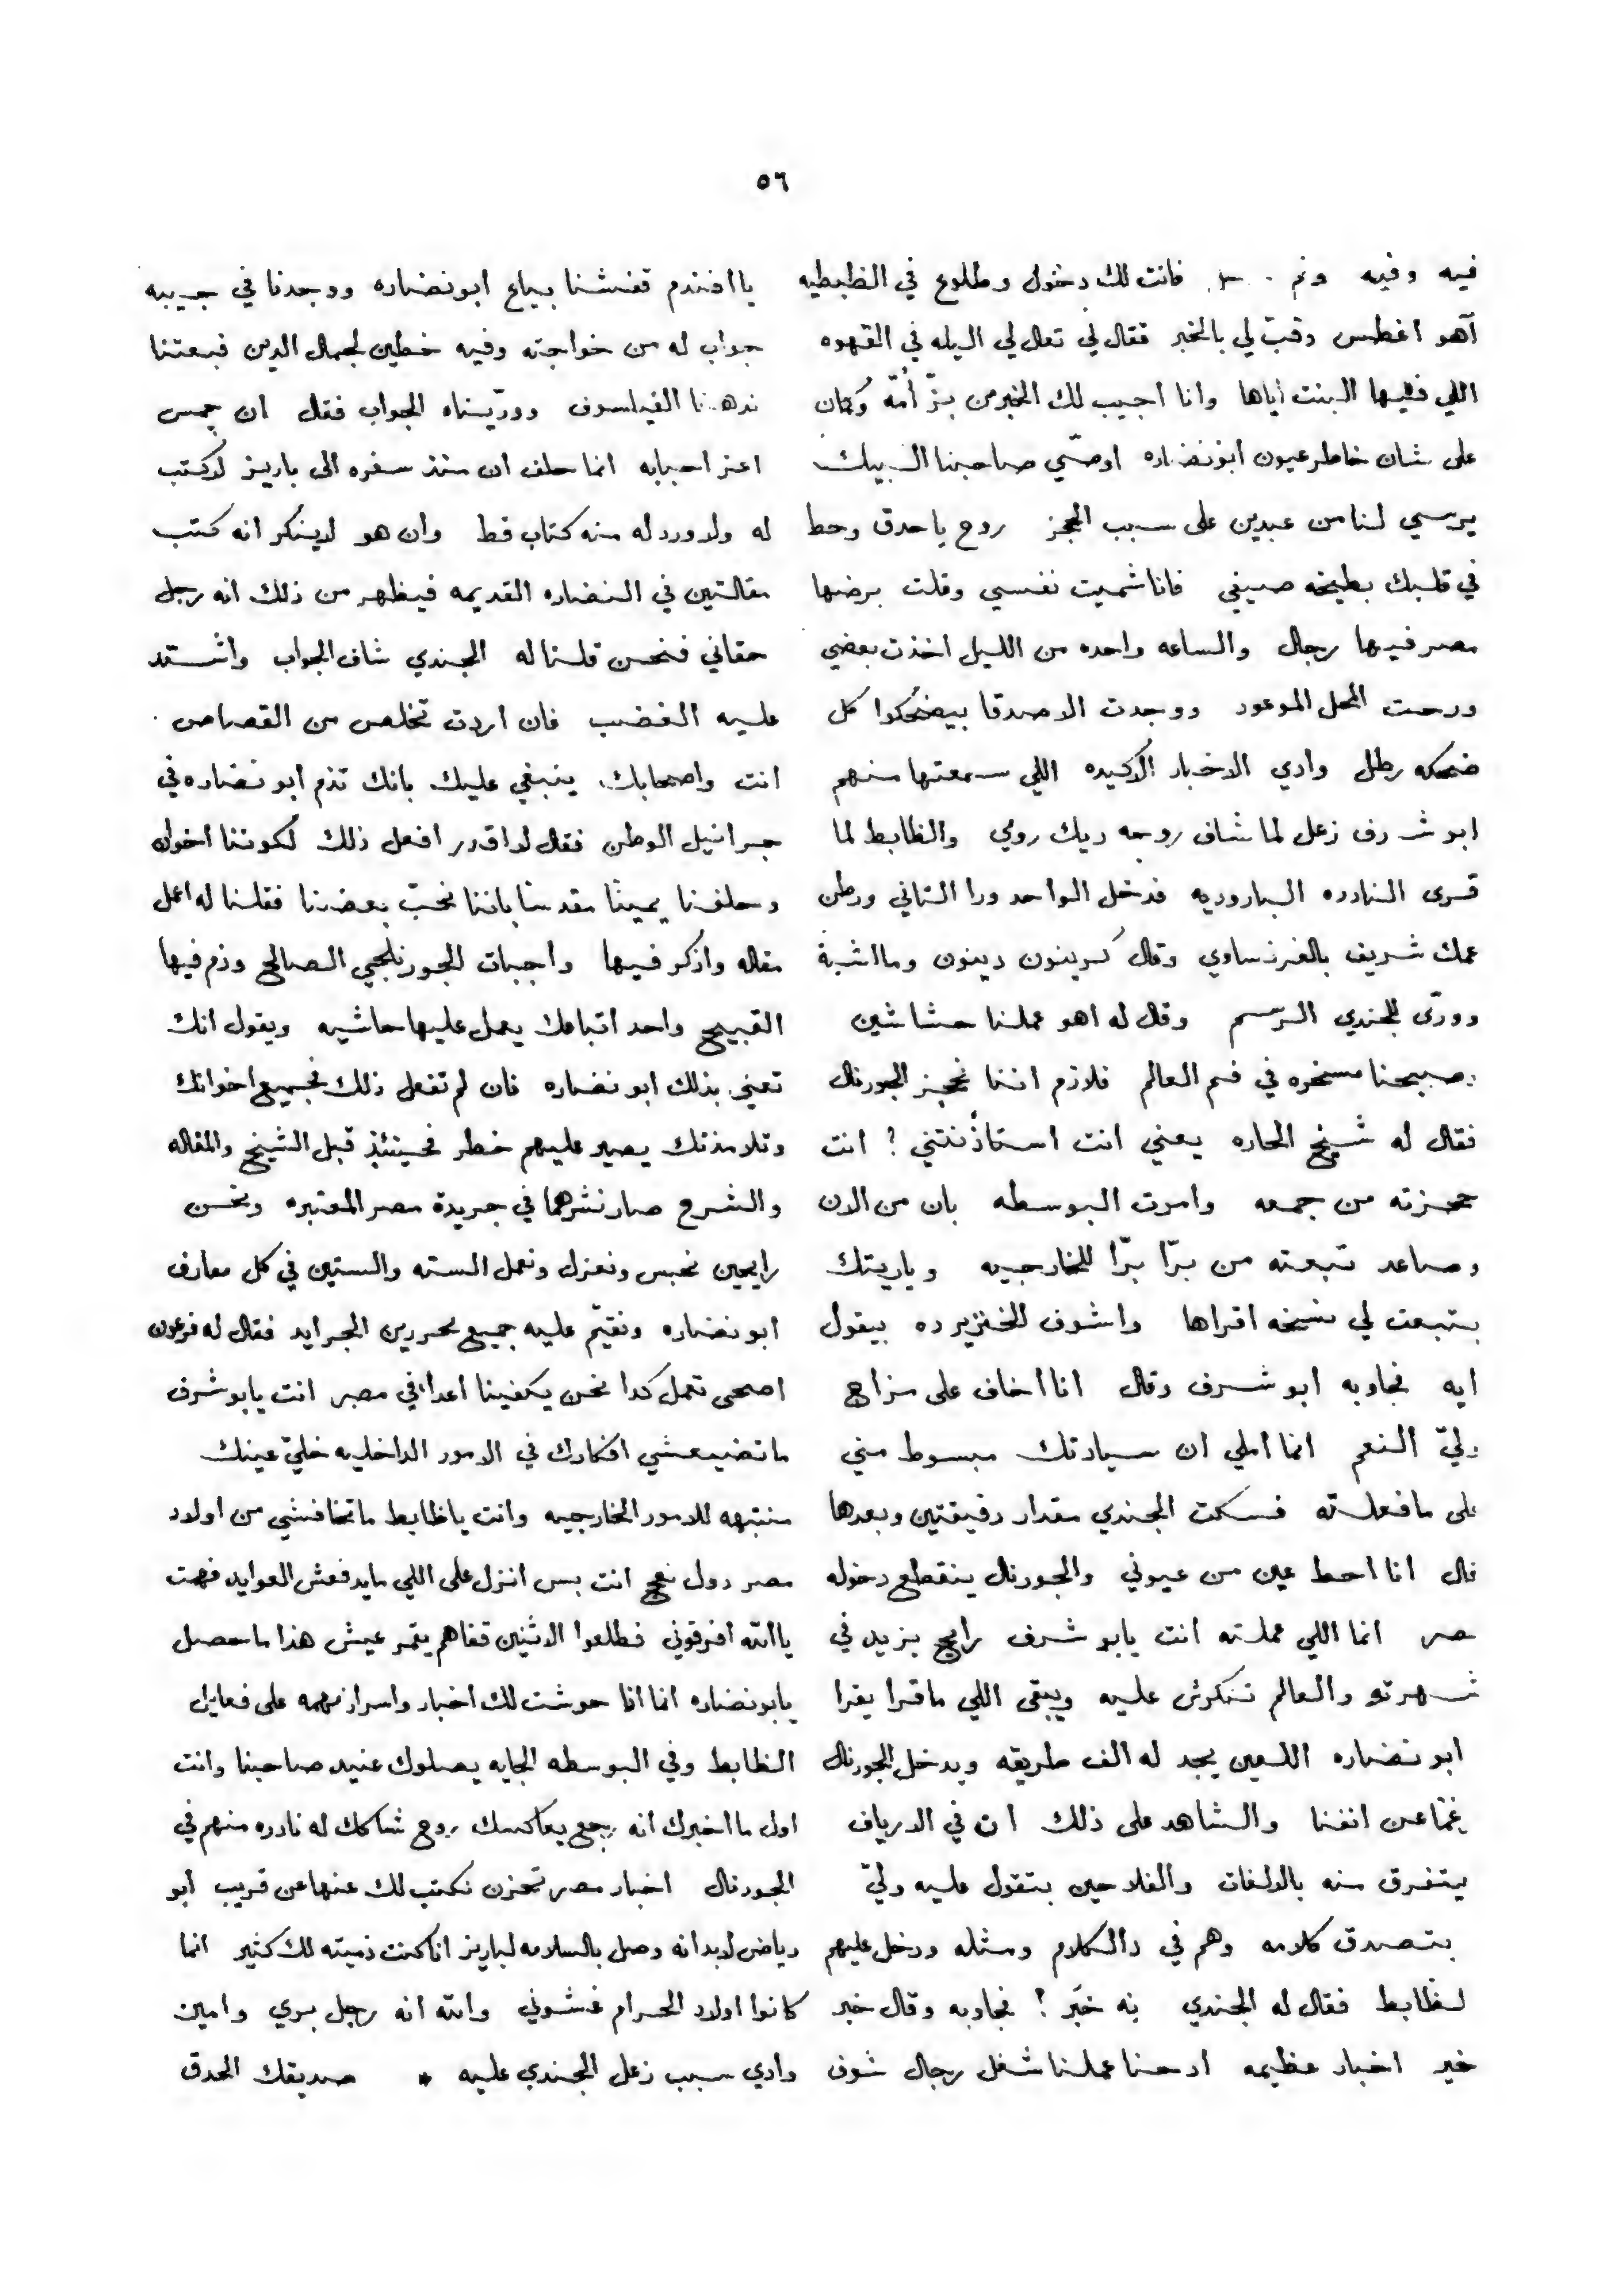 ٥٦
فيه وفيه فانت لك دخول وطلوع في الظبطيه
آهو اغطس وقبّ لي بالخبر فقال لي تعال لي اليله في القهوه
اللي فيها البنت اياها وانا اجيب لك الخبر من بزّ أمّه وكمان
على شان خاطر عيون ابو نضاره اوصّي صاحبنا البيك
يرسي لنا من عبدين على سبب الحجز روح يا حدق وحط
في قلبك بطيخه صيفي فانا شميت نفسي وقلت برضها
مصر فيها رجال والساعه واحده من الليل اخذت بعضي
ورحت المحل الموعود ووجدت الاصدقا بيضحكوا كل
ضحكه رطل وادي الاخبار الاكيده اللي سمعتها منهم
ابو شرف زعل لما شاف روحه ديك رومي والظابط لما
قرى النادره الباروديه فدخل الواحد ورا التاني ورطن
عمك شريف بالفرنساوي وقال كرينون دينون وما اشبه
وورّى للجندي الرسم وقال له اهو عملنا حشاشين
وصبحنا مسخره في فم العالم فلازم اننا نحجز الجورنال
فقال له شيخ الحاره يعني انت استاذنتني ؟ انت
حجزته من جمعه وامرت البوسطه بان من الان
وصاعد تبعته من برّا برّا للخارجيه وياريتك
بتبعت لي نسخه اقراها واشوف الخنزير ده بيقول
ايه فجاوبه ابو شرف وقال انا اخاف على مزاج
وليّ النعم انما املي ان سيادتك مبسوط مني
على ما فعلته فسكت الجندي مقدار دقيقتين وبعدها
قال انا احط عين من عيوني والجورنال ينقطع دخوله
مصر انما اللي عملته انت يابو شرف رايح يزيد في
شهرته والعالم تنكرش عليه ويبقى اللي ما قرا يقرا
ابو نضاره اللعين يجد له الف طريقه ويدخل الجورنال
رغمًا عن انفنا والشاهد على ذلك ان في الارياف
يتفرق منه بالالفات والفلاحين بتقول عليه وليّ
بتصدق كلامه وهم في دا الكلام ومثله ودخل عليهم
الظابط فقال له الجندي نه خبَر ؟ فجاوبه وقال خبر
خير اخبار عظيمه ادحنا عملنا شغل رجال شوف
يا افندم قفشنا بياع ابو نضاره ووجدنا في جيبه
جواب له من خواجته وفيه خطين لجمال الدين فبعتنا
ندهنا الفيلسوف وورّيناه الجواب فقال ان جمس
اعز احبابه انما حلف ان منذ سفره الى باريز لا كتب
له ولا ورد له منه كتاب قط وان هو لا ينكر انه كتب
مقالتين في النضاره القديمه فيظهر من ذلك انه رجل
حقاني فنحن قلنا له الجندي شاف الجواب واشتد
عليه الغضب فان اردت تخلص من القصاص
انت واصحابك ينبغي عليك بانك تذم ابو نضاره في
جرانيل الوطن فقال لا اقدر افعل ذلك لكوننا اخوان
وحلفنا يمينًا مقدسًا باننا نحبّ بعضنا فقلنا له اعمل
مقاله واذكر فيها واجبات الجورنلجي الصالح وذم فيها
القبيح واحد اتباعك يعمل عليها حاشيه ويقول انك
تعني بذلك ابو نضاره فان لم تفعل ذلك فجميع اخوانك
وتلامذتك يصير عليهم خطر فحينئذٍ قبل الشيخ والمقاله
والشرح صار نشرهما في جريدة مصر المعتبره ونحن
رايحين نحبس ونعزل ونعمل السته والستين في كل معارف
ابو نضاره ونقيّم عليه جميع محررين الجرايد فقال له فرعون
اصحى تعمل كدا نحن يكفينا اعدا في مصر انت يابو شرف
ما تضيعشي افكارك في الامور الداخليه خليّ عينك
منتبهه للامور الخارجيه وانت يا ظابط ما تخافشي من اولاد
مصر دول نعج انت بس انزل على اللي ما يدفعش العوايد فهمت
يا الله افرقوني فطلعوا الاثنين قفاهم يقمر عيش هذا ما حصل
يابو نضاره انما انا حوشت لك اخبار واسرار مهمه على فعايل
الظابط وفي البوسطه الجايه يصلوك عنيد صاحبنا وانت
اول ما اخبرك انه رجع يعاكسك روح شاكك له نادره منهم في
الجورنال اخبار مصر تحزن نكتب لك عنها عن قريب ابو
رياض لا بد انه وصل بالسلامه لباريز انا كنت ذميته لك كثير انما
كانوا اولاد الحرام غشوني والله انه رجل بري وامين
وادي سبب زعل الجندي عليه * صديقك الحدق